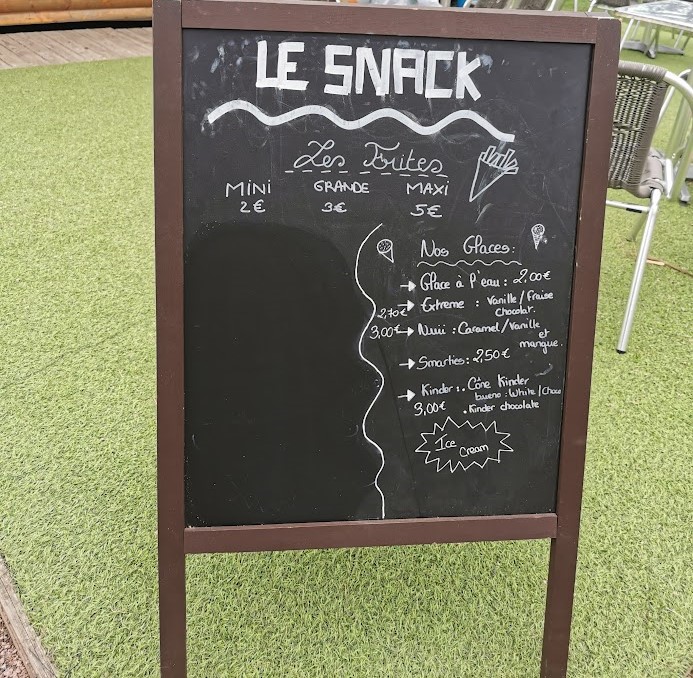 LE SNACK
Les Frites
MINI GRANDE MAXI
2€ 3€ 5€
Nos Glaces:
→ Glace à l'eau : 2,00€
2,70€ → Extreme : Vanille / Fraise
chocolat.
3,00€ → Nuii : Caramel / Vanille
et
mangue.
→ Smarties : 2,50€
→ Kinder : . Cône Kinder
bueno : White / Choco
3,00€ . Kinder chocolate
Ice
Cream